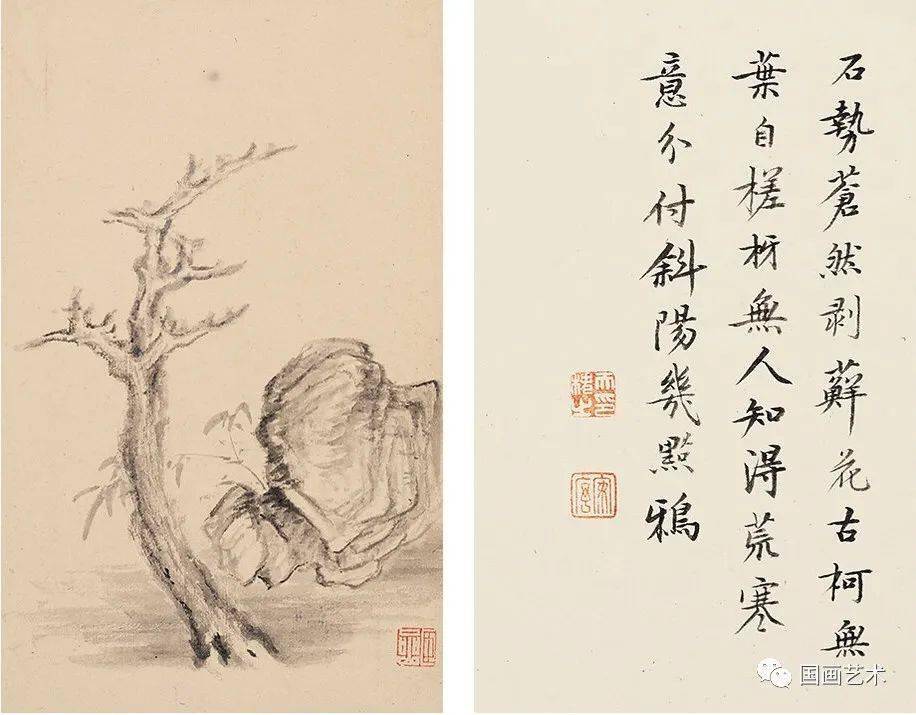 石勢蒼然剥蘚花古柯無
葉自槎枒無人知得荒寒
意分付斜陽幾點鴉
国画艺术